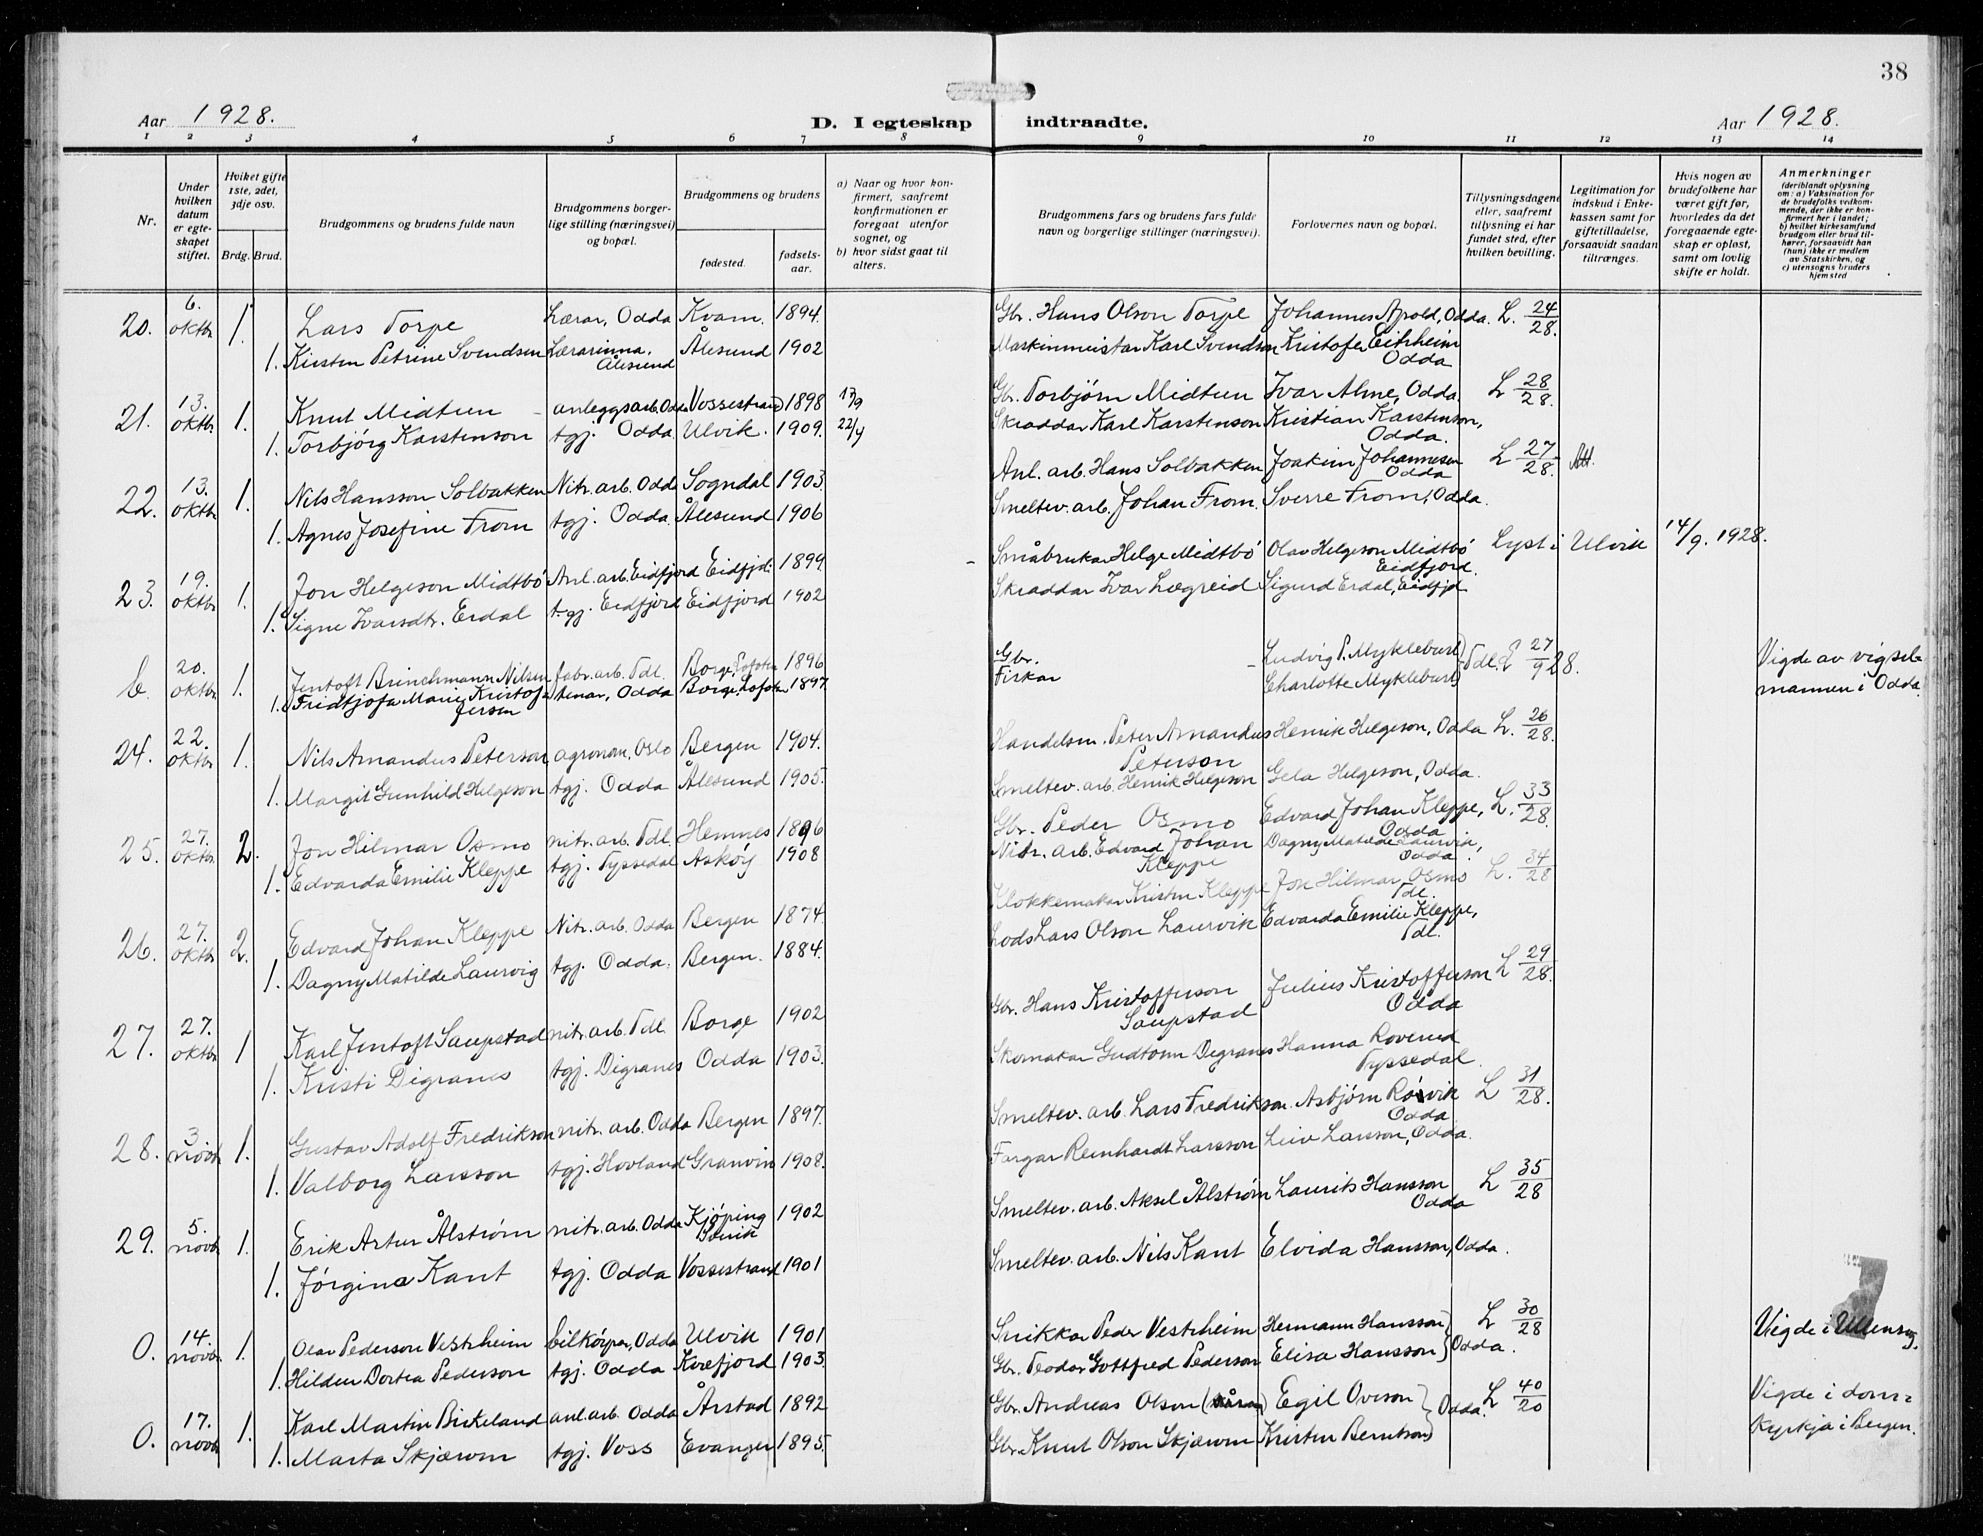 38
Aar 1928.
D. I egteskap indtraadte.
Aar 1928.
1 2 3 4 5 6 7 8 9 10 11 12 13 14
Nr.
Under hvilken datum er egteskapet stiftet.
Hviket gifte 1ste, 2det, 3dje osv.
Brdg. Brud.
Brudgommens og brudens fulde navn
Brudgommens borgerlige stilling (næringsvei) og bopæl.
Brudgommens og brudens
fødested.
fødselsaar.
a) Naar og hvor konfirmert, saafremt konfirmationen er foregaat utenfor sognet, og
b) hvor sidst gaat til alters.
Brudgommens fars og brudens fars fulde navn og borgerlige stillinger (næringsvei).
Forlovernes navn og bopæl.
Tillysningsdagene eller, saafremt tillysning ei har fundet sted, efter hvilken bevilling.
Legitimation for indskud i Enkekassen samt for giftetilladelse, forsaavidt saadan tiltrænges.
Hvis nogen av brudefolkene har været gift før, hvorledes da det foregaaende egteskap er opløst, samt om lovlig skifte er holdt.
Anmerkninger (deriblandt oplysning om: a) Vaksination for de brudefolks vedkommende, der ikke er konfirmert her i landet; b) hvilket kirkesamfund brudgom eller brud tilhører, forsaavidt han (hun) ikke er medlem av Statskirken, og c) utensogns bruders hjemsted
20. 6. oktbr 1. Lars Torpe Lærar, Odda Kvam. 1894. Gbr. Hans Olson Torpe Johannes Apold, Odda. L. 24/28.
1. Kirsten Petrine Svendsen Lærarinna, Ålesund Ålesund 1902 Maskinmeistar Karl Svendson Kristofer Eitrheim Odda
21. 13. oktbr 1. Knut Midtun anleggsarb. Odda Vossestrand 1898 17/9 Gbr. Torbjørn Midtun Ivar Alme, Odda. L 28/28.
1. Torbjørg Karstenson tgj. Odda Ulvik. 1909. 22/4 Skraddar Karl Karstenson Kristian Karstenson, Odda.
22. 13. oktbr 1. Nils Hansson Solbakken Nitr. arb. Odda Sogndal 1903. Anl. arb. Hans Solbakken Joakim Johannesen Odda L 27/28.
1. Agnes Josefine From tgj. Odda. Ålesund 1906 Smeltev. arb. Johan From. Sverre From, Odda.
23. 19. oktbr 1. Jon Helgeson Midtbø Anl. arb. Eidfjord Eidfjd. 1899. Småbrukar Helge Midtbø Olav Helgeson Midtbø Eidfjord. Lyst i Ulvik 14/9. 1928.
1. Signe Ivarsdtr. Erdal tgj. Eidfjord Eidfjord 1902 Skraddar Ivar Lægreid Sigurd Erdal, Eidfjd
b. 20. oktbr 1. Jentoft Brinchmann Nilsen fabr. arb. Tdl. Borge, Lofoten 1896 Gbr. Ludvig P. Myklebust Tdl. 27/9 28. Vigde av vigselsmannen i Odda.
1. Fridtjofa Marie Kristofersen tenar, Odda Borge, Lofoten 1897. Fiskar Charlotte Myklebust
24. 22. oktbr 1. Nils Amandus Peterson agronom, Oslo Bergen 1904. Handelsm. Peter Amandus Peterson Henrik Helgeson, Odda L. 26/28.
1. Margit Gunhild Helgeson tgj. Odda Ålesund 1905. Smeltev. arb. Henrik Helgeson Gela Helgeson, Odda.
25. 27. oktbr 2. Jon Hilmar Osmo nitr. arb. Tdl. Hemnes 1896 Gbr. Peder Osmo Edvard Johan Kleppe, Odda L. 33/28.
1. Edvarda Emilie Kleppe tgj. Tyssedal Askøy 1908 Nitr. arb. Edvard Johan Kleppe Dagny Matilde Laurvik, Odda.
26. 27. oktbr 2. Edvard Johan Kleppe Nitr. arb. Odda Bergen 1874. Klokkemakar Kristen Kleppe Jon Hilmar Osmo Tdl. L. 34/28
1. Dagny Matilde Laurvig tgj. Odda. Bergen. 1884. Lods Lars Olson Laurvik Edvarda Emilie Kleppe, Tdl.
27. 27. oktbr 1 Karl Jentoft Saupstad nitr. arb. Tdl. Borge 1902 Gbr. Hans Kristofferson Saupstad Julius Kristofferson Odda L 29/28.
1. Kristi Digranes tgj. Digranes Odda 1903. Skomakar Gudtorm Digranes Hanna Tyssedal.
28. 3 novbr 1. Gustav Adolf Fredrikson nitr. arb. Odda Bergen 1897. Smeltev. arb. Lars Fredrikson. Asbjørn Røsvik Odda L 31/28.
1. Valborg Larsson tgj. Hovland Granvin 1908. Fargar Reinhardt Larsson Leiv Larsson, Odda.
29. 5. novbr 1. Erik Artur Ålstrøm nitr. arb. Odda Kjøping 1902 Smeltev. arb. Aksel Ålstrøm Laurits Hansson Odda L 35/28
1. Jørgina Kant tgj. Odda Vossestrand 1901 Smeltev. arb. Nils Kant Elvida Hansson, Odda.
O. 14. novbr 1. Olav Pederson Vestrheim bilkøyrar, Odda Ulvik 1901 Snikkar Peder Vestrheim Hermann Hansson L 30/28 Vigde i Ullensvg.
1. Hildur Dortea Pederson tgj. Odda Kvæfjord 1903. Gbr. Teodor Gottfred Pederson Elisa Hansson Odda.
O. 17. novbr 1. Karl Martin Birkeland anl. arb. Odda Årstad 1892 Gbr. Andreas Olson Egil Overson Odda. L 40/20 Vigde i domkyrkja i Bergen.
1. Marta Skjærvm tgj. Voss Evanger 1895. Gbr. Knut Olson Skjærvm Kristen Berntson